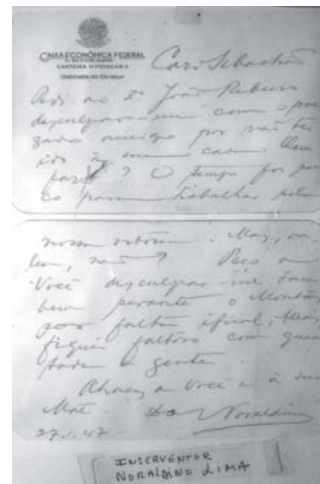 CAIXA ECONÔMICA FEDERAL
CARTEIRA HIPOTECÁRIA
Gabinete do Diretor
Caro Sebastião
Pedi ao Dr. João Ribeiro
desculpar-me com o pre
zado amigo por não ter
ido à sua casa. Que
fazer? O tempo foi pou
co para trabalhar pela
nossa vitória. Mas, va
leu, não? Peço a
Você desculpar-me tam
bem perante o
por falta igual. Mas
fiquei faltoso com quasi
toda a gente.
Abraços a Você e à
do Noraldino
27.1.47
INTERVENTOR
NORALDINO LIMA